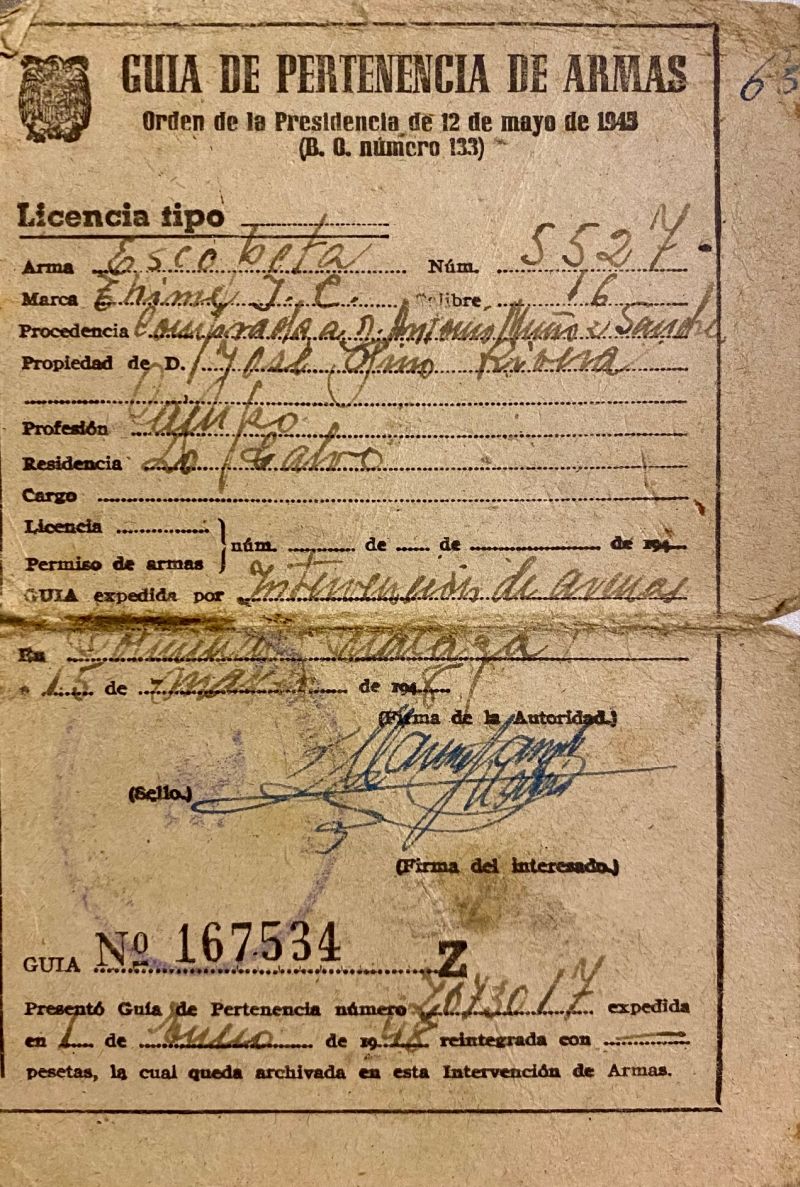 63
GUIA DE PERTENENCIA DE ARMAS
Orden de la Presidencia de 12 de mayo de 1945
(B. O. número 133)
Licencia tipo
Arma Escopeta Núm. 5527
Marca J. C. Calibre 16
Procedencia Comprada a D. Antonio Muñoz Sanche
Propiedad de D. José Rivera
Profesión Campo
Residencia Lo Calvo
Cargo
Licencia
Permiso de armas
núm. de de de 194
GUIA expedida por Intervención de
En Malaga
a 15 de de 1948
(Firma de la Autoridad.)
(Sello.)
(Firma del interesado.)
GUIA Nº 167534 Z
Presentó Guía de Pertenencia número expedida
en 1 de Enero de 1948 reintegrada con
pesetas, la cual queda archivada en esta Intervención de Armas.